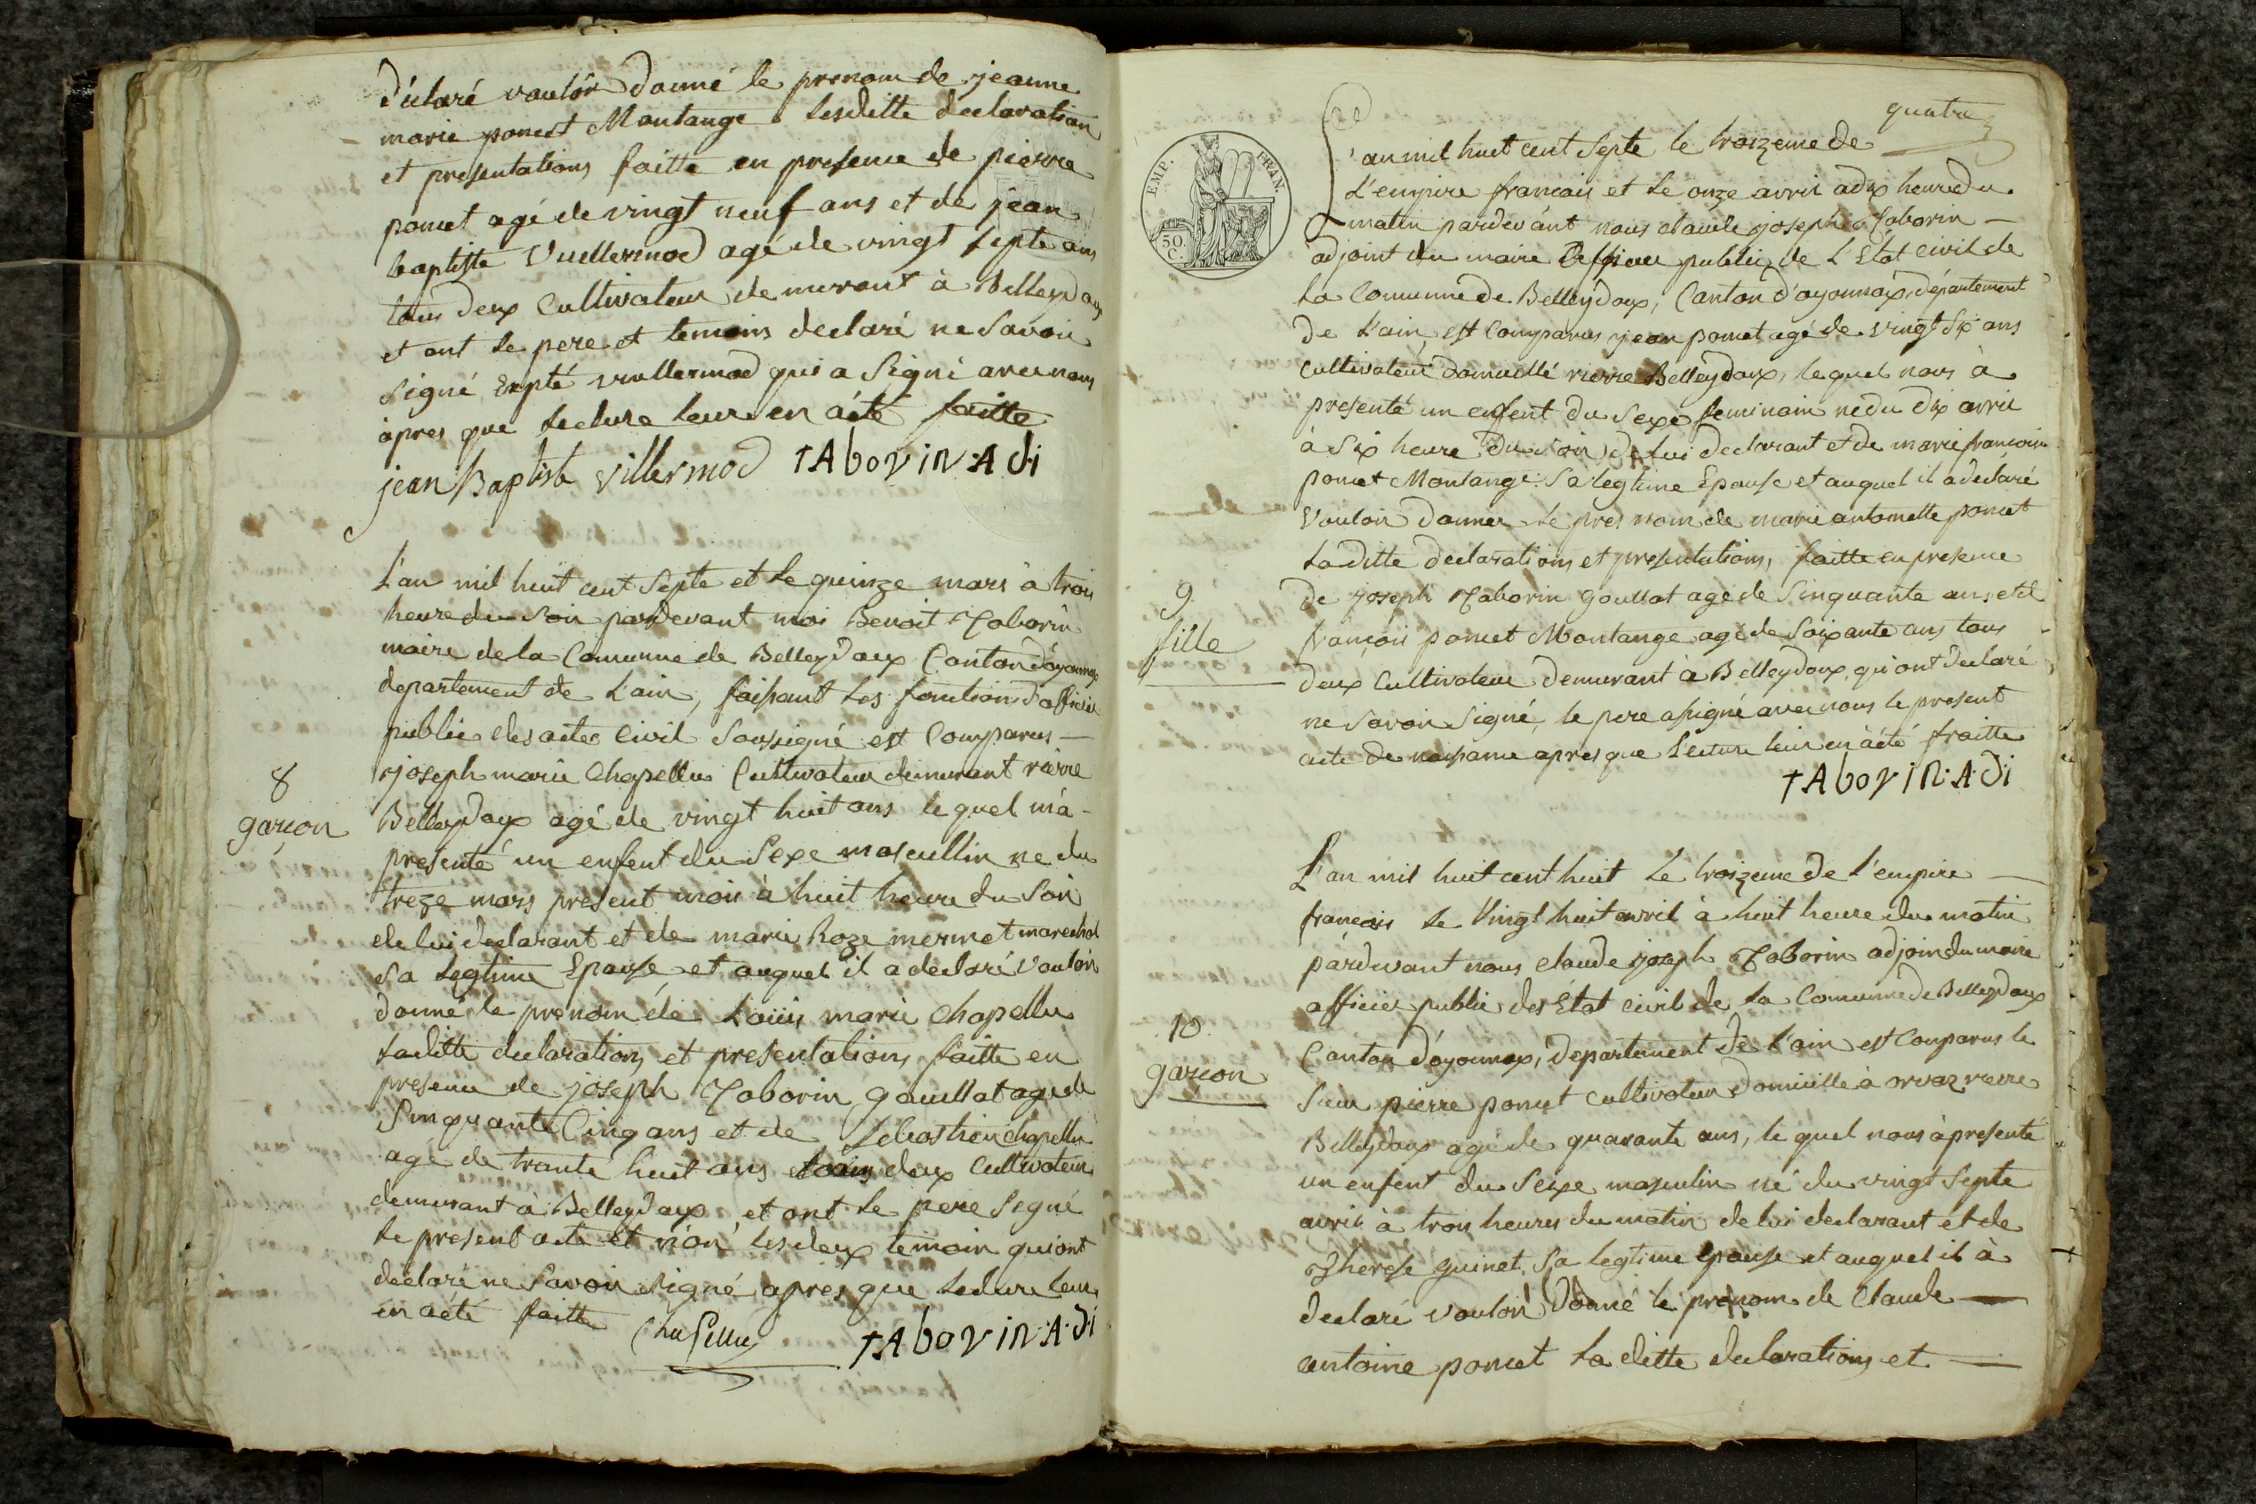 déclaré vouloir donné le prenom de jeanne
marie poncet Montange. Lesditte declaration
et presentations faitte en presence de pierre
poncet agé de vingt neuf ans et de jean
baptiste Vuillermod agé de vingt septe ans
tous deux Cultivateur demurant à Belleydoux
et ont le pere et temoins declaré ne Savoir
Signé Expté vuillermod qui a Signé avec nous
àpres que Lecture leur en àété faitte
jean Baptiste Villermod tAborin.A di
L'an mil huit cent Septe et le quinze mars à trois
heure du Soir pardevant moi Benoit Taborin
maire de la Comunne de Belleydoux Canton d'oyonnax
departement de L'ain, faissant les fonction d'officier
public des actes Civil Soussigné est Comparus —
joseph marie Chapellu Cultivateur demurant rierre
8
garçon
Belleydoux agé de vingt huit ans le quel m'à -
presenté un enfent du Sexe mascullin ne du
treze mars present mois à huit heure du Soir
de lui declarant et de marie Roze mermet marechal
Sa Legtime Epouse et auquel il a declaré vouloir
donné le prenom de Loüis marie Chapellu
Laditte declarations et presentations faitte en
presence de joseph Taborin goullat agé de
Sinquante Cinq ans et de Sebastien chapellu
agé de trante huit ans tous deux Cultivateur
demurant à Belleydoux et ont le pere Segné
le present acte et non les deux temoin qui ont
declaré ne Savoir Signé apres que Lecture leur
en àété faitte Chapellu tAborin.A.di
quatre
L'an mil huit cent Septe le troizeme de
L'empire francais et le onze avril à dix heure du
matin pardevant nous claude joseph Taborin —
adjoint du maire officier public de L'Etat Civil de
La Comunne de Belleydoux, Canton d'oyonnax, département
de L'ain, est Comparus jean poncet agé de vingt Six ans
Cultivateur domicillé rierre Belleydoux, lequel nous à
presenté un enfent du Sexe feminain né du dix avril
à Six heure du Soir de lui declarant et de marie francoise
poncet Montange Sa legtime Epouse et auquel il a declaré
Vouloir donner le pres nom de marie antoinette poncet
Laditte declarations et presentations, faitte en presence
9
fille
de joseph Taborin goullat agé de Sinquante ans et de
françois poncet Montange agé de Soixante ans tous
deux Cultivateur demurant à Belleydoux, qui ont declaré
ne Savoir Signé, le pere a signé avec nous le present
acte de naissance apres que Lecture leur en àété faitte
tAborin.A.di
EMP. FRAN.
50 C.
L'an mil huit cent huit le troizeme de l'empire —
francais le Vingt huit avril à huit heure du matin
pardevant nous claude joseph Taborin adjoin du maire
officier public des Etat civil de la Comunne de Belleydoux
10
garcon
Canton d'oyonnax, departement de l'ain est Comparus le
Sieur pierre poncet cultivateur domicille à orvaz rierre
Belleydoux agé de quarante ans, le quel nous à presenté
un enfent du Sexe masculin né du vingt Septe
avril à trois heures du matin de lui declarant et de
Therese guinet Sa legtime Epouse et auquel il à
declaré vouloir donné le prenom de Claude —
antoine poncet La ditte declarations et —